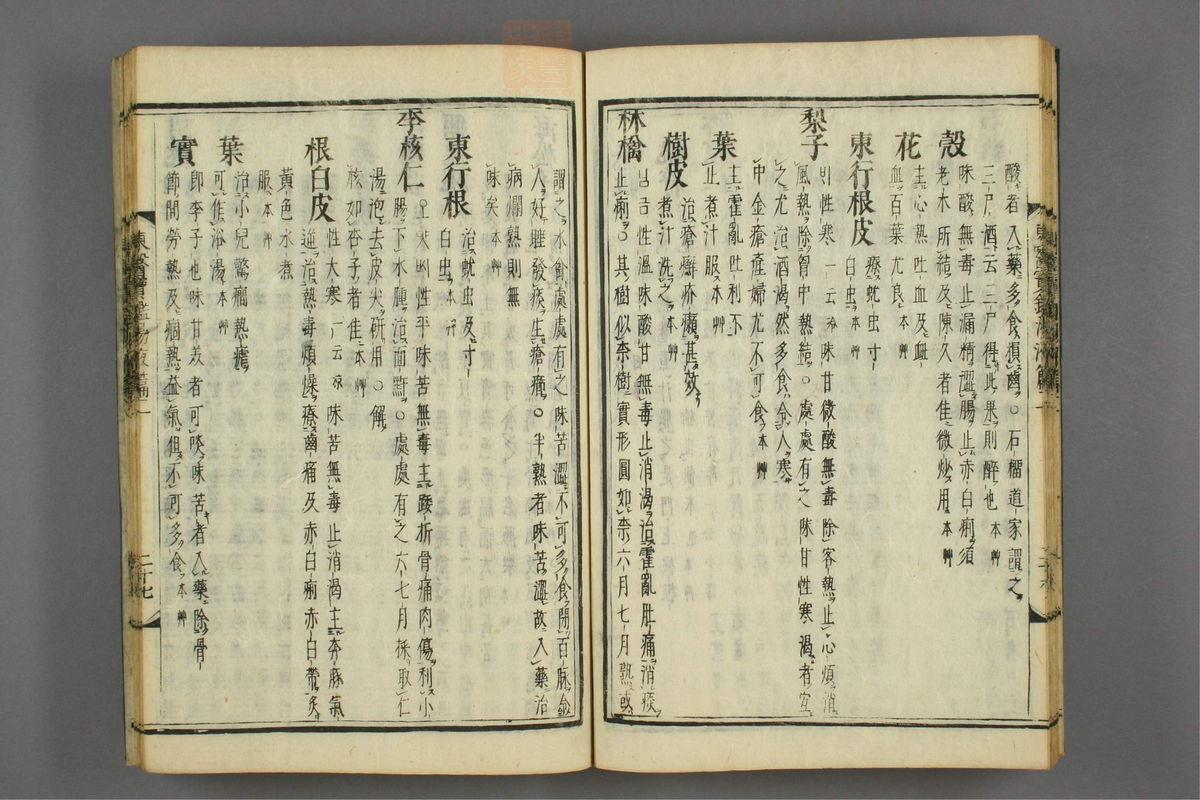 酸者入藥多食損齒○石榴道家謂之
三尸酒云三尸得此果則醉也本艸
殼
味酸無毒止漏精澁腸止赤白痢須
老木所結及陳久者佳微炒用本艸
花
主心熱吐血及衄
血百葉尤良本艸
東行根皮
療蚘虫寸
白虫本艸
梨子
性寒一云冷味甘微酸無毒除客熱止心煩消
風熱除胷中熱結○處處有之味甘性寒渴者宜
之尤治酒渴然多食令人寒
中金瘡産婦尤不可食本艸
葉
主霍亂吐利不
止煮汁服本艸
樹皮
治瘡癬疥癩甚效
煮汁洗之本艸
林檎
性溫味酸甘無毒止消渴治霍亂肚痛消痰
止痢○其樹似柰樹實形圓如柰六月七月熟或
謂之水食處處有之味苦澁不可多食閉百脉令
人好睡發痰生瘡癤○半熟者味苦澁故入藥治
病爛熟則無
味矣本艸
東行根
治蚘虫及寸
白虫本艸
李核仁
性平味苦無毒主踒折骨痛肉傷利小
腸下水腫治面䵟○處處有之六七月採取仁
湯泡去皮尖硏用○解
核如杏子者佳本艸
根白皮
性大寒一云凉味苦無毒止消渴主奔豚氣
逆治熱毒煩燥療齒痛及赤白痢赤白帶炙
黃色水煮
服本艸
葉
治小兒驚癎熱瘧
可作浴湯本艸
實
卽李子也味甘美者可啖味苦者入藥除骨
節間勞熱及痼熱益氣但不可多食本艸
二十七